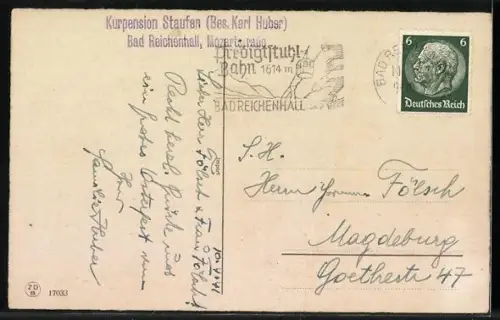 Kurpension Staufen (Bes. Karl Huber)
Bad Reichenhall, Mozartstraße
Predigtstuhl-
Bahn 1614 m
BADREICHENHALL
BAD RE
6 6
Deutsches Reich
10.4.41
Lieber Herr Fölsch u. Frau Fölsch!
Recht herzl. Grüße und
ein frohes Osterfest von
Ihrer
Familie Huber
S. H.
Herrn Fölsch
Magdeburg
Goethestr 47
17033